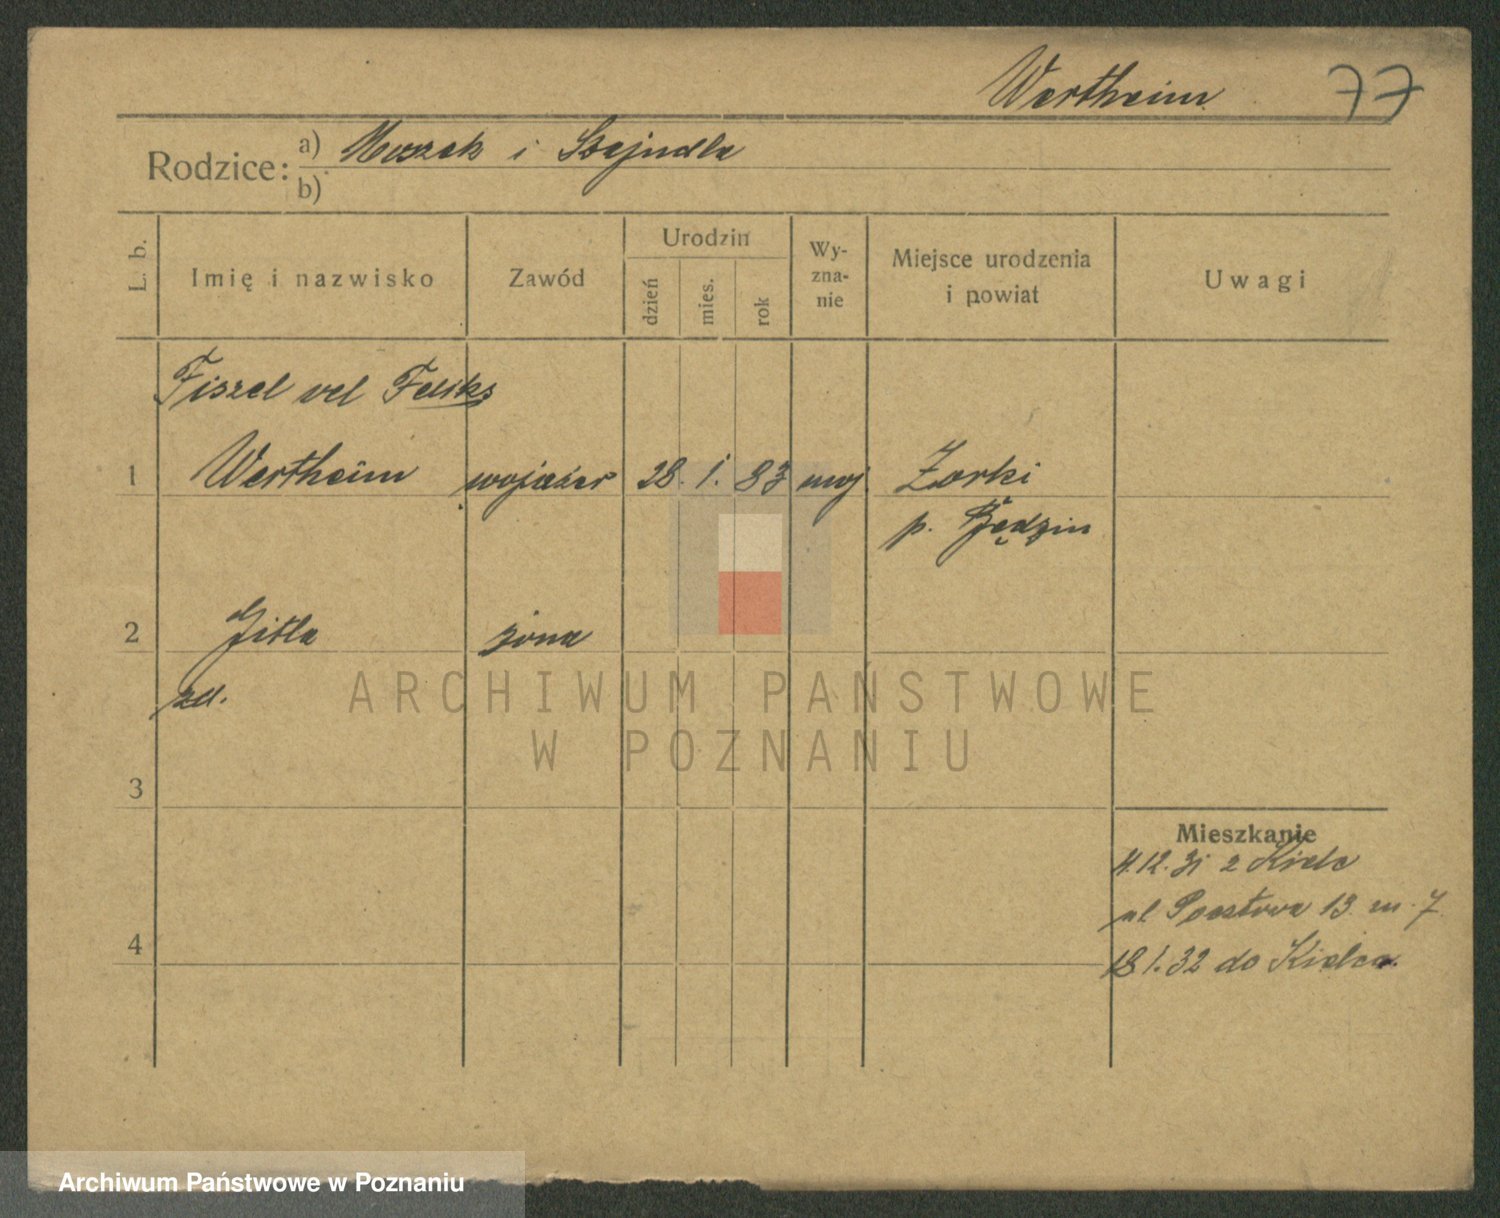 Wertheim 77
Rodzice: a) Moszek i Szajndla
b)
L. b. Imię i nazwisko Zawód Urodzin dzień mies. rok Wy-zna-nie Miejsce urodzenia i powiat Uwagi
Fiszel vel Feliks
1 Wertheim wojażer 28. 1. 83 moj Żarki
p. Będzin
2 Gitla żona
zd.
ARCHIWUM PAŃSTWOWE
W POZNANIU
3
Mieszkanie
4.12.31 z Kielc
ul 13 m. 7
4
18 1.32 do Kielce
Archiwum Państwowe w Poznaniu